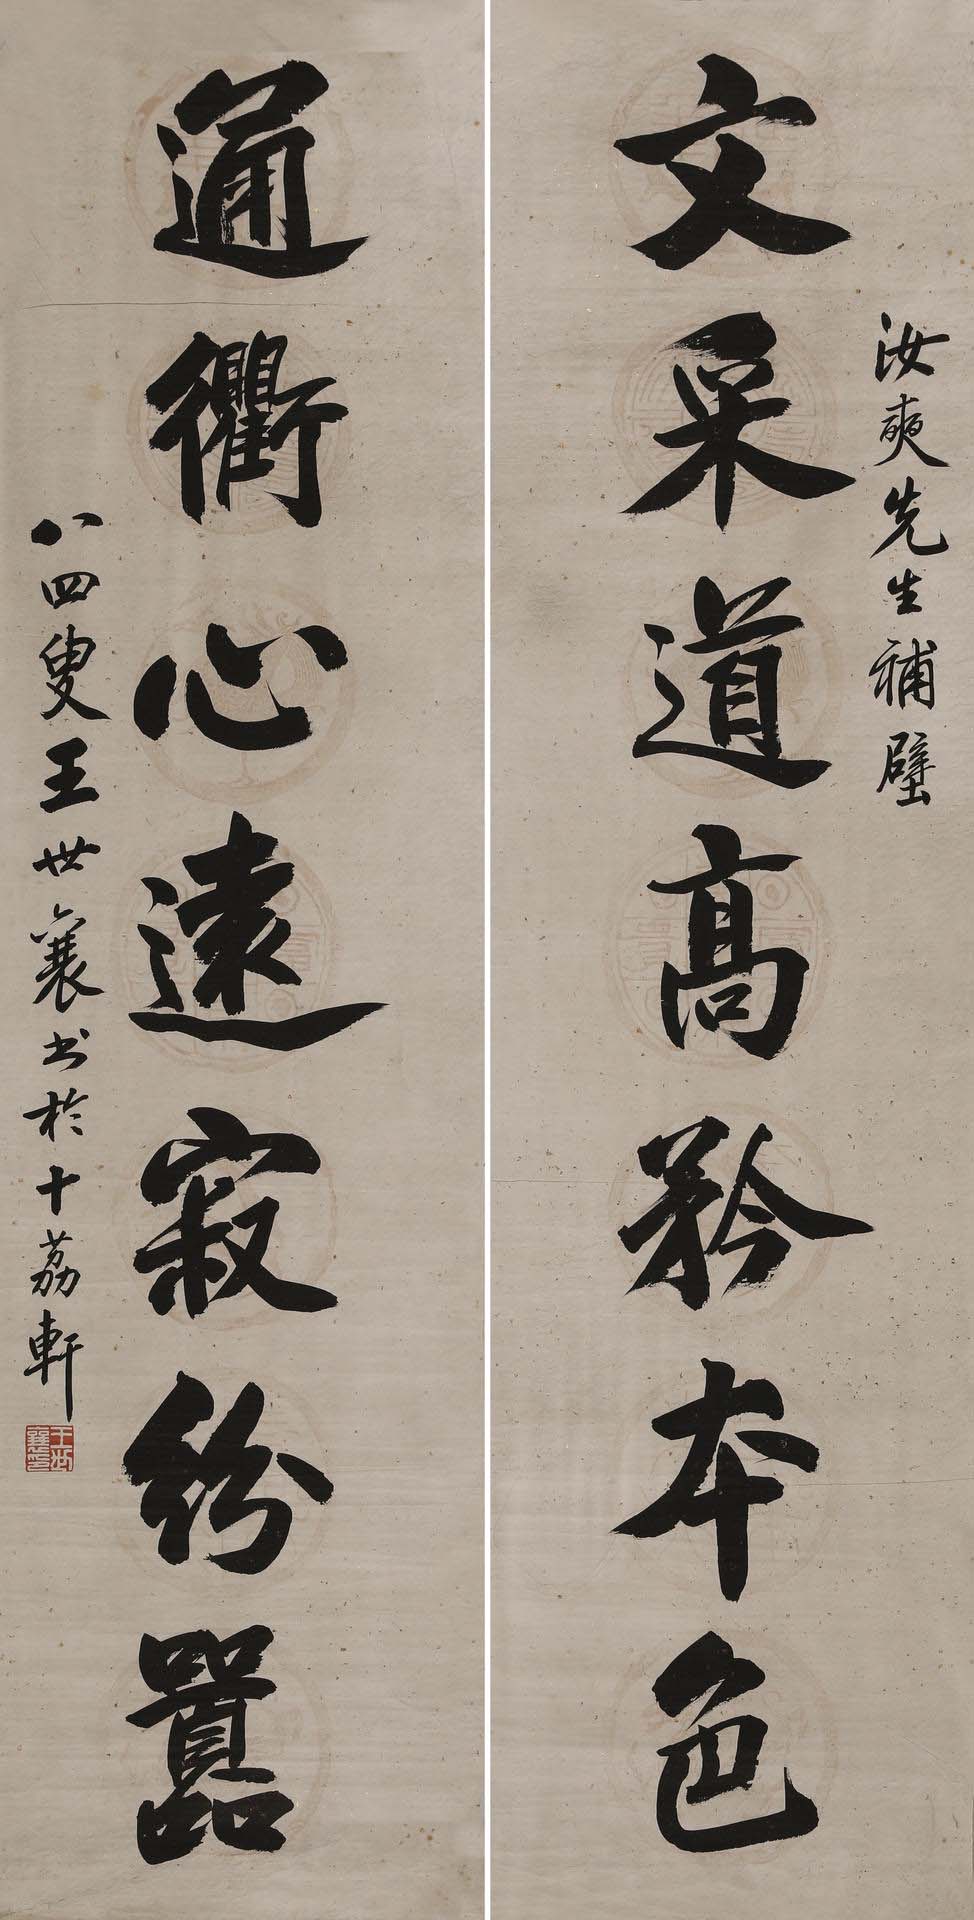 汝奭先生補壁
文采道高矜本色
通衢心遠寂紛囂
八四叟王世襄书於十荔軒
王世襄印